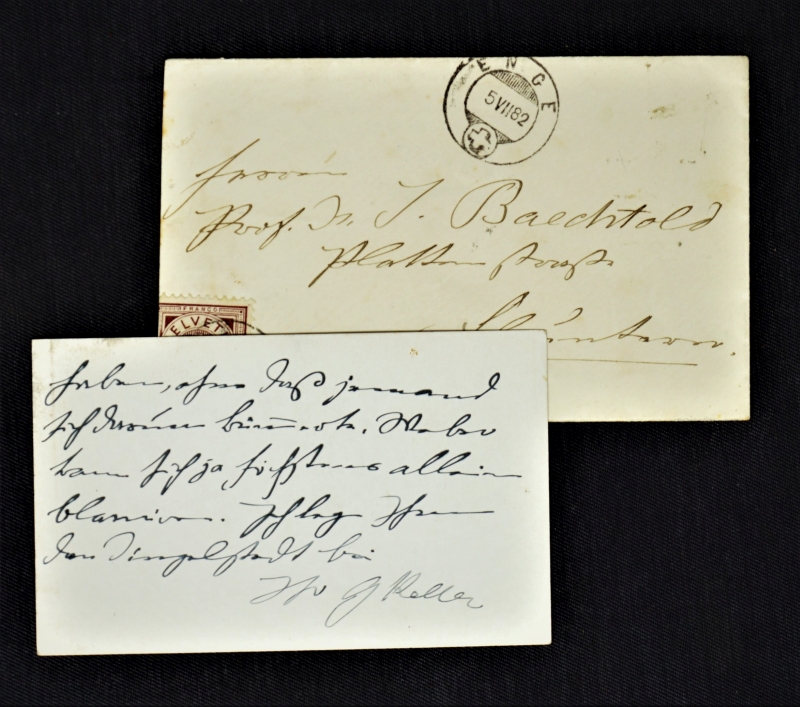 ENGE
5 VII 82
Herrn
Prof. Dr. J. Baechtold
Plattenstraße
Fluntern.
FRANCO
HELVET
haben, ohne daß jemand
sich darum kümmerte. Weber
kann sich ja höchstens allein
blamiren. Schlage Ihnen
den Dingelstedt bei
Ihr G Keller